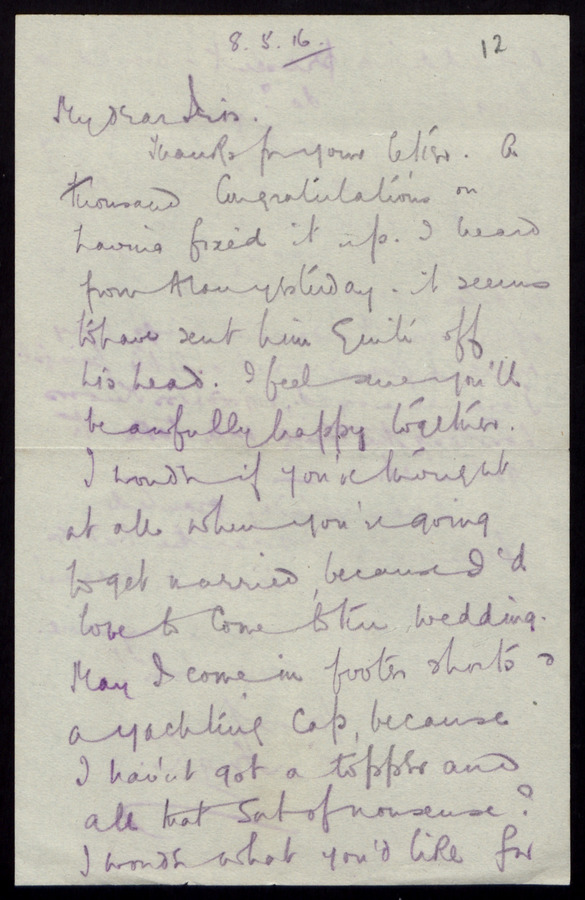 8.5.16.
12
My dear Iris.
Thanks for your letter. A
thousand Congratulations on
having fixed it up. I heard
from Alan yesterday. it seems
to have sent him Quite off
his head. I feel sure you'll
be awfully happy together.
I wonder if you've thought
at all when you're going
to get married, because I'd
love to Come to the wedding.
May I come in footer shorts &
a yachting Cap, because
I hav'nt got a topper and
all that Sort of nonsense?
I wonder what you'd like for